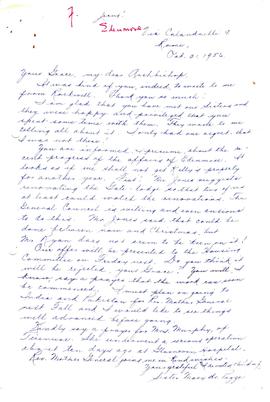 Jesus!
Elenmore
Via Calandrelli 9
Rome.
Oct. 3, 1956
Your Grace, my dear Archbishop,
It was kind of you, indeed, to write to me
from Rockwell. Thank you so much!
I am glad that you have met our Sisters and
they were happy and privileged that you
spent some time with them. They wrote to me
telling all about it. I only had one regret that
I was not there
You are informed, I presume about the
progress of the affairs of Elenmore. It
looks as if we shall not get Kelly's property
for another year. But! Mr Jones suggests
renovating the Gate-lodge so that two of us
at least could watch the renovations. The
General Council is willing and even anxious
to do this. Mr Jones said that could be
done between now and Christmas, but
Mr Ryan has no
Our offer will be presented to the Housing
Committee on Friday next. Do you think it
will be rejected, your Grace? You will I
know, say a prayer that the work can soon
be commenced. I must plan on going to
India and Pakistan for Rev. Mother General
next Fall and I would like to see things
well advanced before going.
Kindly say a prayer for Mrs. Murphy, of
She underwent a serious operation
days ago at Hospital.
Rev. Mother General joins me in
Yours gratefully
Sister Mary de